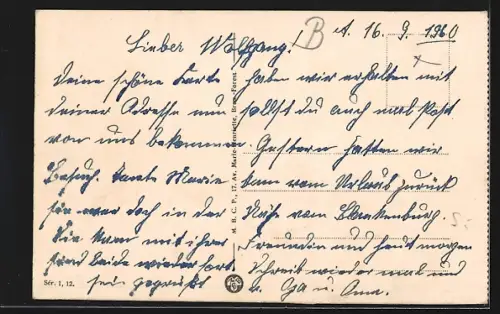 A. 16. 9. 1960
B
Lieber Wolfgang!
Deine schöne Karte haben wir erhalten mit
deiner Adresse nun sollst du auch mal Post
von uns bekommen. Gestern hatten wir
Besuch. Tante Marie kam vom Urlaub zurück
sie war doch in der Nähe vom Blankenburg.
Sie kam mit ihrer Freundin und heut morgen
sind beide wieder fort. Schreib wieder mal und
sei gegrüßt v. Oa u. Oma.
M. B. C. P., 17, Av. Marie-Henriette, Brux.-Forest
Sér. 1, 12.